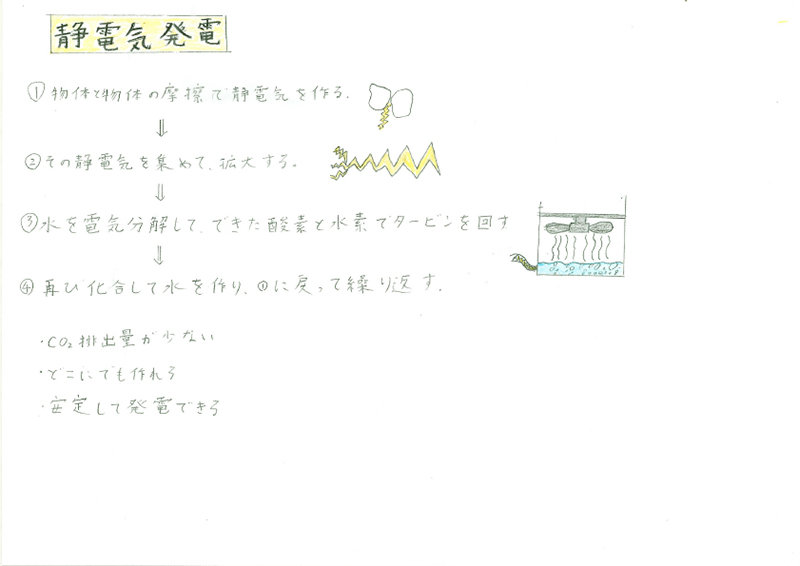 静電気発電
①物体と物体の摩擦で静電気を作る.
②その静電気を集めて、拡大する。
③水を電気分解して、できた酸素と水素でタービンを回す
④再び化合して水を作り、①に戻って繰り返す.
・CO₂排出量が少ない
・どこにでも作れる
・安定して発電できる